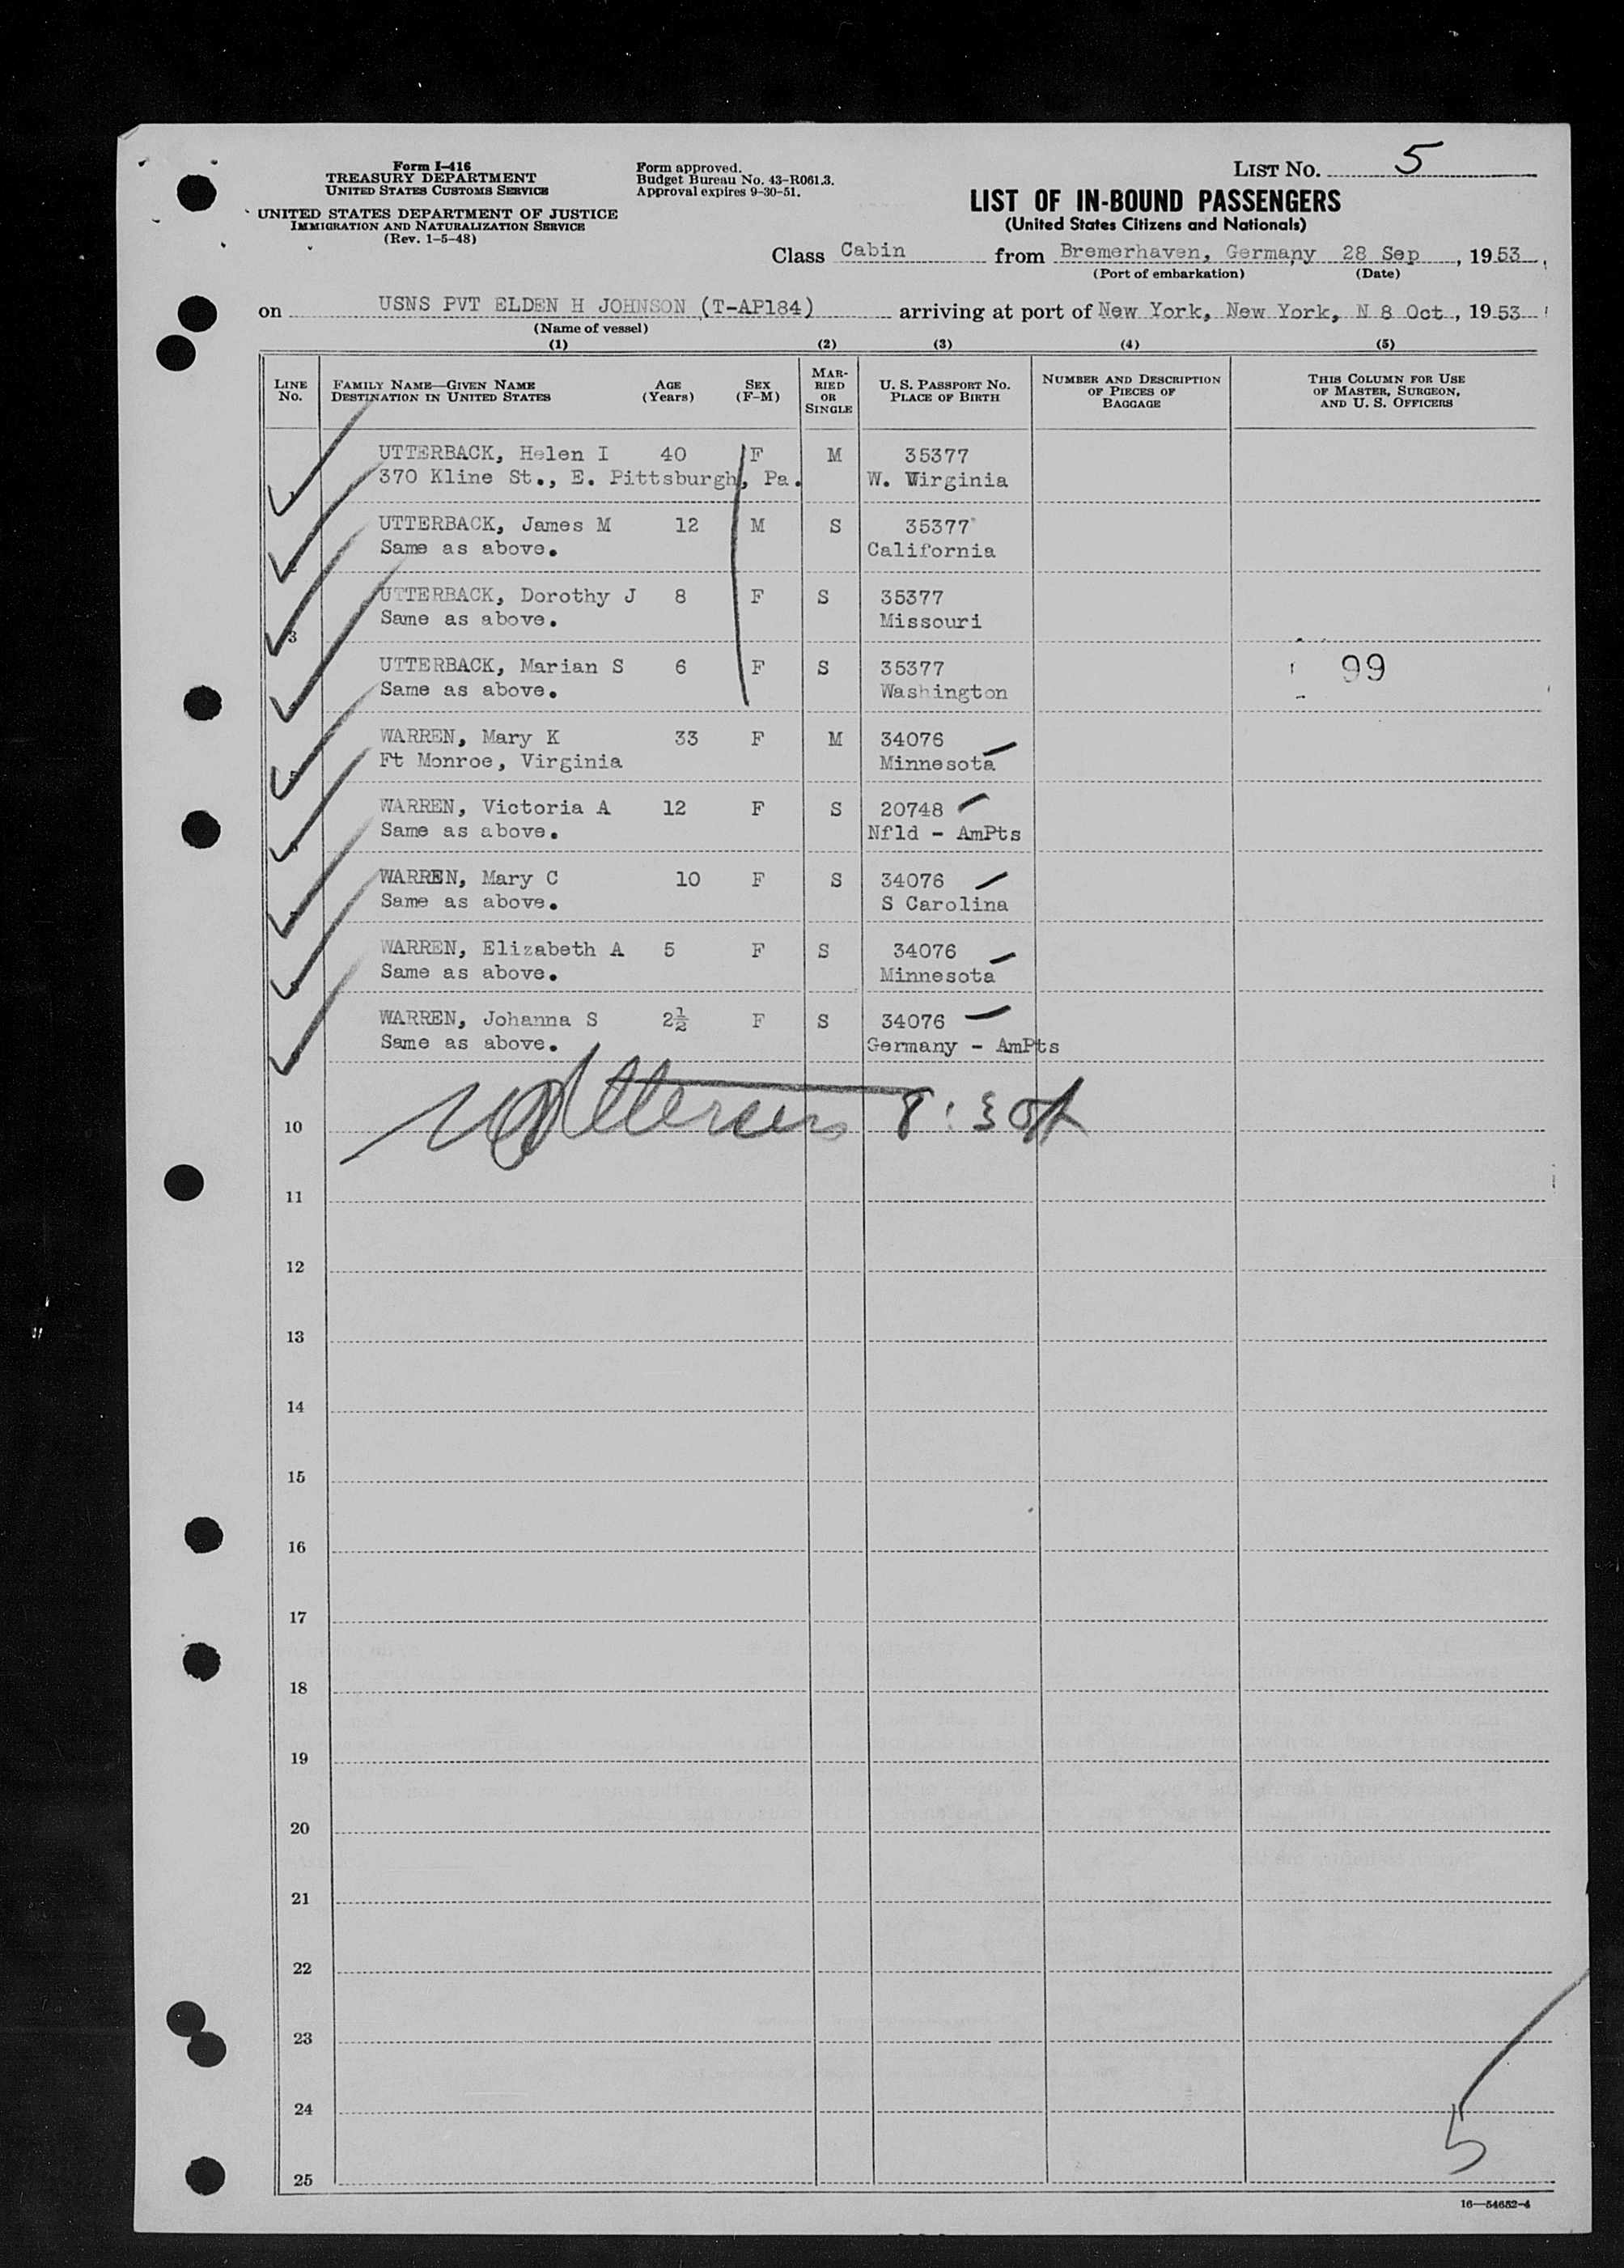 Form I-416
TREASURY DEPARTMENT
UNITED STATES CUSTOMS SERVICE
UNITED STATES DEPARTMENT OF JUSTICE
IMMIGRATION AND NATURALIZATION SERVICE
(Rev. 1-5-48)
Form approved.
Budget Bureau No. 43-R061.3.
Approval expires 9-30-51.
LIST NO. 5
LIST OF IN-BOUND PASSENGERS
(United States Citizens and Nationals)
Class Cabin from Bremerhaven, Germany 28 Sep, 1953
(Port of embarkation) (Date)
on USNS PVT ELDEN H JOHNSON (T-AP184) arriving at port of New York, New York, N 8 Oct, 1953
(Name of vessel)
(1) (2) (3) (4) (5)
LINE NO. FAMILY NAME—GIVEN NAME DESTINATION IN UNITED STATES AGE (Years) SEX (F-M) MARRIED OR SINGLE U. S. PASSPORT NO. PLACE OF BIRTH NUMBER AND DESCRIPTION OF PIECES OF BAGGAGE THIS COLUMN FOR USE OF MASTER, SURGEON, AND U. S. OFFICERS
UTTERBACK, Helen I 40 F M 35377
370 Kline St., E. Pittsburgh, Pa. W. Virginia
UTTERBACK, James M 12 M S 35377
Same as above. California
UTTERBACK, Dorothy J 8 F S 35377
3 Same as above. Missouri
UTTERBACK, Marian S 6 F S 35377 99
Same as above. Washington
WARREN, Mary K 33 F M 34076
Ft Monroe, Virginia Minnesota
WARREN, Victoria A 12 F S 20748
Same as above. Nfld - AmPts
WARREN, Mary C 10 F S 34076
Same as above. S Carolina
WARREN, Elizabeth A 5 F S 34076
Same as above. Minnesota
WARREN, Johanna S 2½ F S 34076
Same as above. Germany - AmPts
10
11
12
13
14
15
16
17
18
19
20
21
22
23
24
5
25
16—54652-4